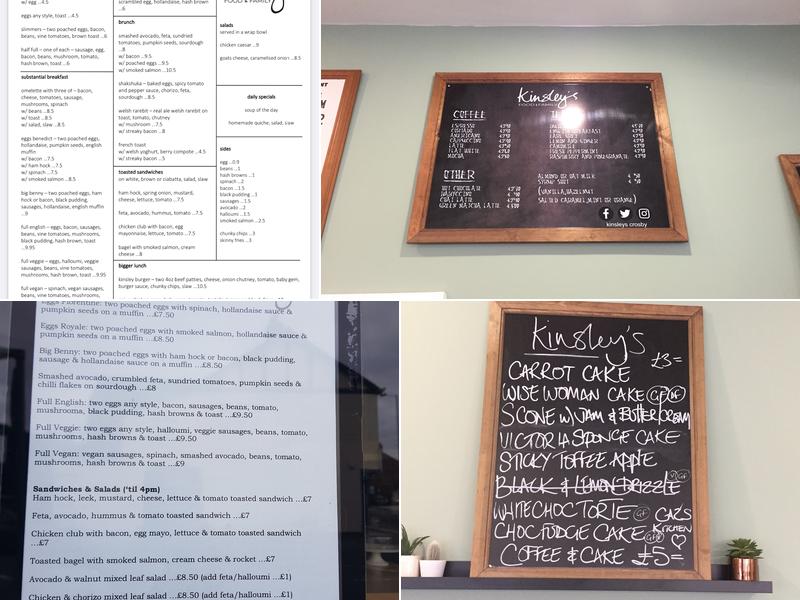 w/ egg ...4.5
eggs any style, toast ...4.5
slimmers – two poached eggs,
beans, vine tomatoes, brown toast ..6
half full – one of each – sausage, egg,
bacon, beans, mushroom, tomato,
hash brown, toast ...6
substantial breakfast
omelette with three of – bacon,
cheese, tomatoes, sausage,
mushrooms, spinach
w/ beans ...8.5
w/ toast ...8.5
w/ salad, slaw ...8.5
eggs benedict – two poached eggs,
hollandaise, pumpkin seeds, english
muffin
w/ bacon ...7.5
w/ ham hock ...7.5
w/ spinach ...7.5
w/ smoked salmon ...8.5
big benny – two poached eggs, ham
hock or bacon, black pudding,
sausages, hollandaise, english muffin
...9
full english – eggs, bacon, sausages,
beans, vine tomatoes, mushrooms,
black pudding, hash brown, toast
...9.95
full veggie – eggs, halloumi, veggie
sausages, beans, vine tomatoes,
mushrooms, hash brown, toast ...9.95
full vegan – spinach, vegan sausages,
beans, vine tomatoes, mushrooms,
scrambled egg, hollandaise, hash brown
...6
brunch
smashed avocado, feta, sundried
tomatoes, pumpkin seeds, sourdough
...8
w/ bacon ...9.5
w/ poached eggs ...9.5
w/ smoked salmon ...10.5
shakshuka – baked eggs, spicy tomato
and pepper sauce, chorizo, feta,
sourdough ...8.5
welsh rarebit – real ale welsh rarebit on
toast, tomato, chutney
w/ mushroom ...7.5
w/ streaky bacon ...8
french toast
w/ welsh yoghurt, berry compote ...4.5
w/ streaky bacon ...5
toasted sandwiches
on white, brown or ciabatta, salad, slaw
ham hock, spring onion, mustard,
cheese, lettuce, tomato ...7.5
feta, avocado, hummus, tomato ...7.5
chicken club with bacon, egg
mayonnaise, lettuce, tomato ...7.5
bagel with smoked salmon, cream
cheese ...8
bigger lunch
kinsley burger – two 4oz beef patties, cheese, onion chutney, tomato, baby gem,
burger sauce, chunky chips, slaw ...10.5
FOOD & FAMILY
salads
served in a wrap bowl
chicken caesar ...9
goats cheese, caramelised onion ...8.5
daily specials
soup of the day
homemade quiche, salad, slaw
sides
egg ...0.9
beans ...1
hash browns ...1
spinach ...2
bacon ...1.5
black pudding ...1
sausages ...1.5
avocado ...2
halloumi ...1.5
smoked salmon ...2.5
chunky chips ...3
skinny fries ...3
Kinsley's
FOOD & FAMILY
COFFEE
ESPRESSO
CORTADO
AMERICANO
CAPPUCCINO
LATTE
FLAT WHITE
MOCHA
LEMON AND GINGER
FRESH PEPPERMINT
RASPBERRY AND POMEGRANATE
OTHER
HOT CHOCOLATE
CHAI LATTE
GREEN MATCHA LATTE
ALMOND OR OAT MILK
SYRUP SHOT
(VANILLA, HAZELNUT
SALTED CARAMEL, MINT OR ORANGE)
kinsleys crosby
Eggs Florentine: two poached eggs with spinach, hollandaise sauce &
pumpkin seeds on a muffin ...£7.50
Eggs Royale: two poached eggs with smoked salmon, hollandaise sauce &
pumpkin seeds on a muffin ...£8.50
Big Benny: two poached eggs with ham hock or bacon, black pudding,
sausage & hollandaise sauce on a muffin ...£8.50
Smashed avocado, crumbled feta, sundried tomatoes, pumpkin seeds &
chilli flakes on sourdough ...£8
Full English: two eggs any style, bacon, sausages, beans, tomato,
mushrooms, black pudding, hash browns & toast ...£9.50
Full Veggie: two eggs any style, halloumi, veggie sausages, beans, tomato,
mushrooms, hash browns & toast ...£9.50
Full Vegan: vegan sausages, spinach, smashed avocado, beans, tomato,
mushrooms, hash browns & toast ...£9
Sandwiches & Salads ('til 4pm)
Ham hock, leek, mustard, cheese, lettuce & tomato toasted sandwich ...£7
Feta, avocado, hummus & tomato toasted sandwich ...£7
Chicken club with bacon, egg mayo, lettuce & tomato toasted sandwich
...£7
Toasted bagel with smoked salmon, cream cheese & rocket ...£7
Avocado & walnut mixed leaf salad ...£8.50 (add feta/halloumi ...£1)
Chicken & chorizo mixed leaf salad ...£8.50 (add feta/halloumi ...£1)
Kinsley's
£3=
CARROT CAKE
WISE WOMAN CAKE GF DF
SCONE W/ JAM & BUTTER/CREAM
VICTORIA SPONGE CAKE
STICKY TOFFEE APPLE
BLACK & LEMON DRIZZLE
WHITE CHOC TORTE GF
CHOC FUDGE CAKE GF
CAZ'S
KITCHEN
COFFEE & CAKE £5=